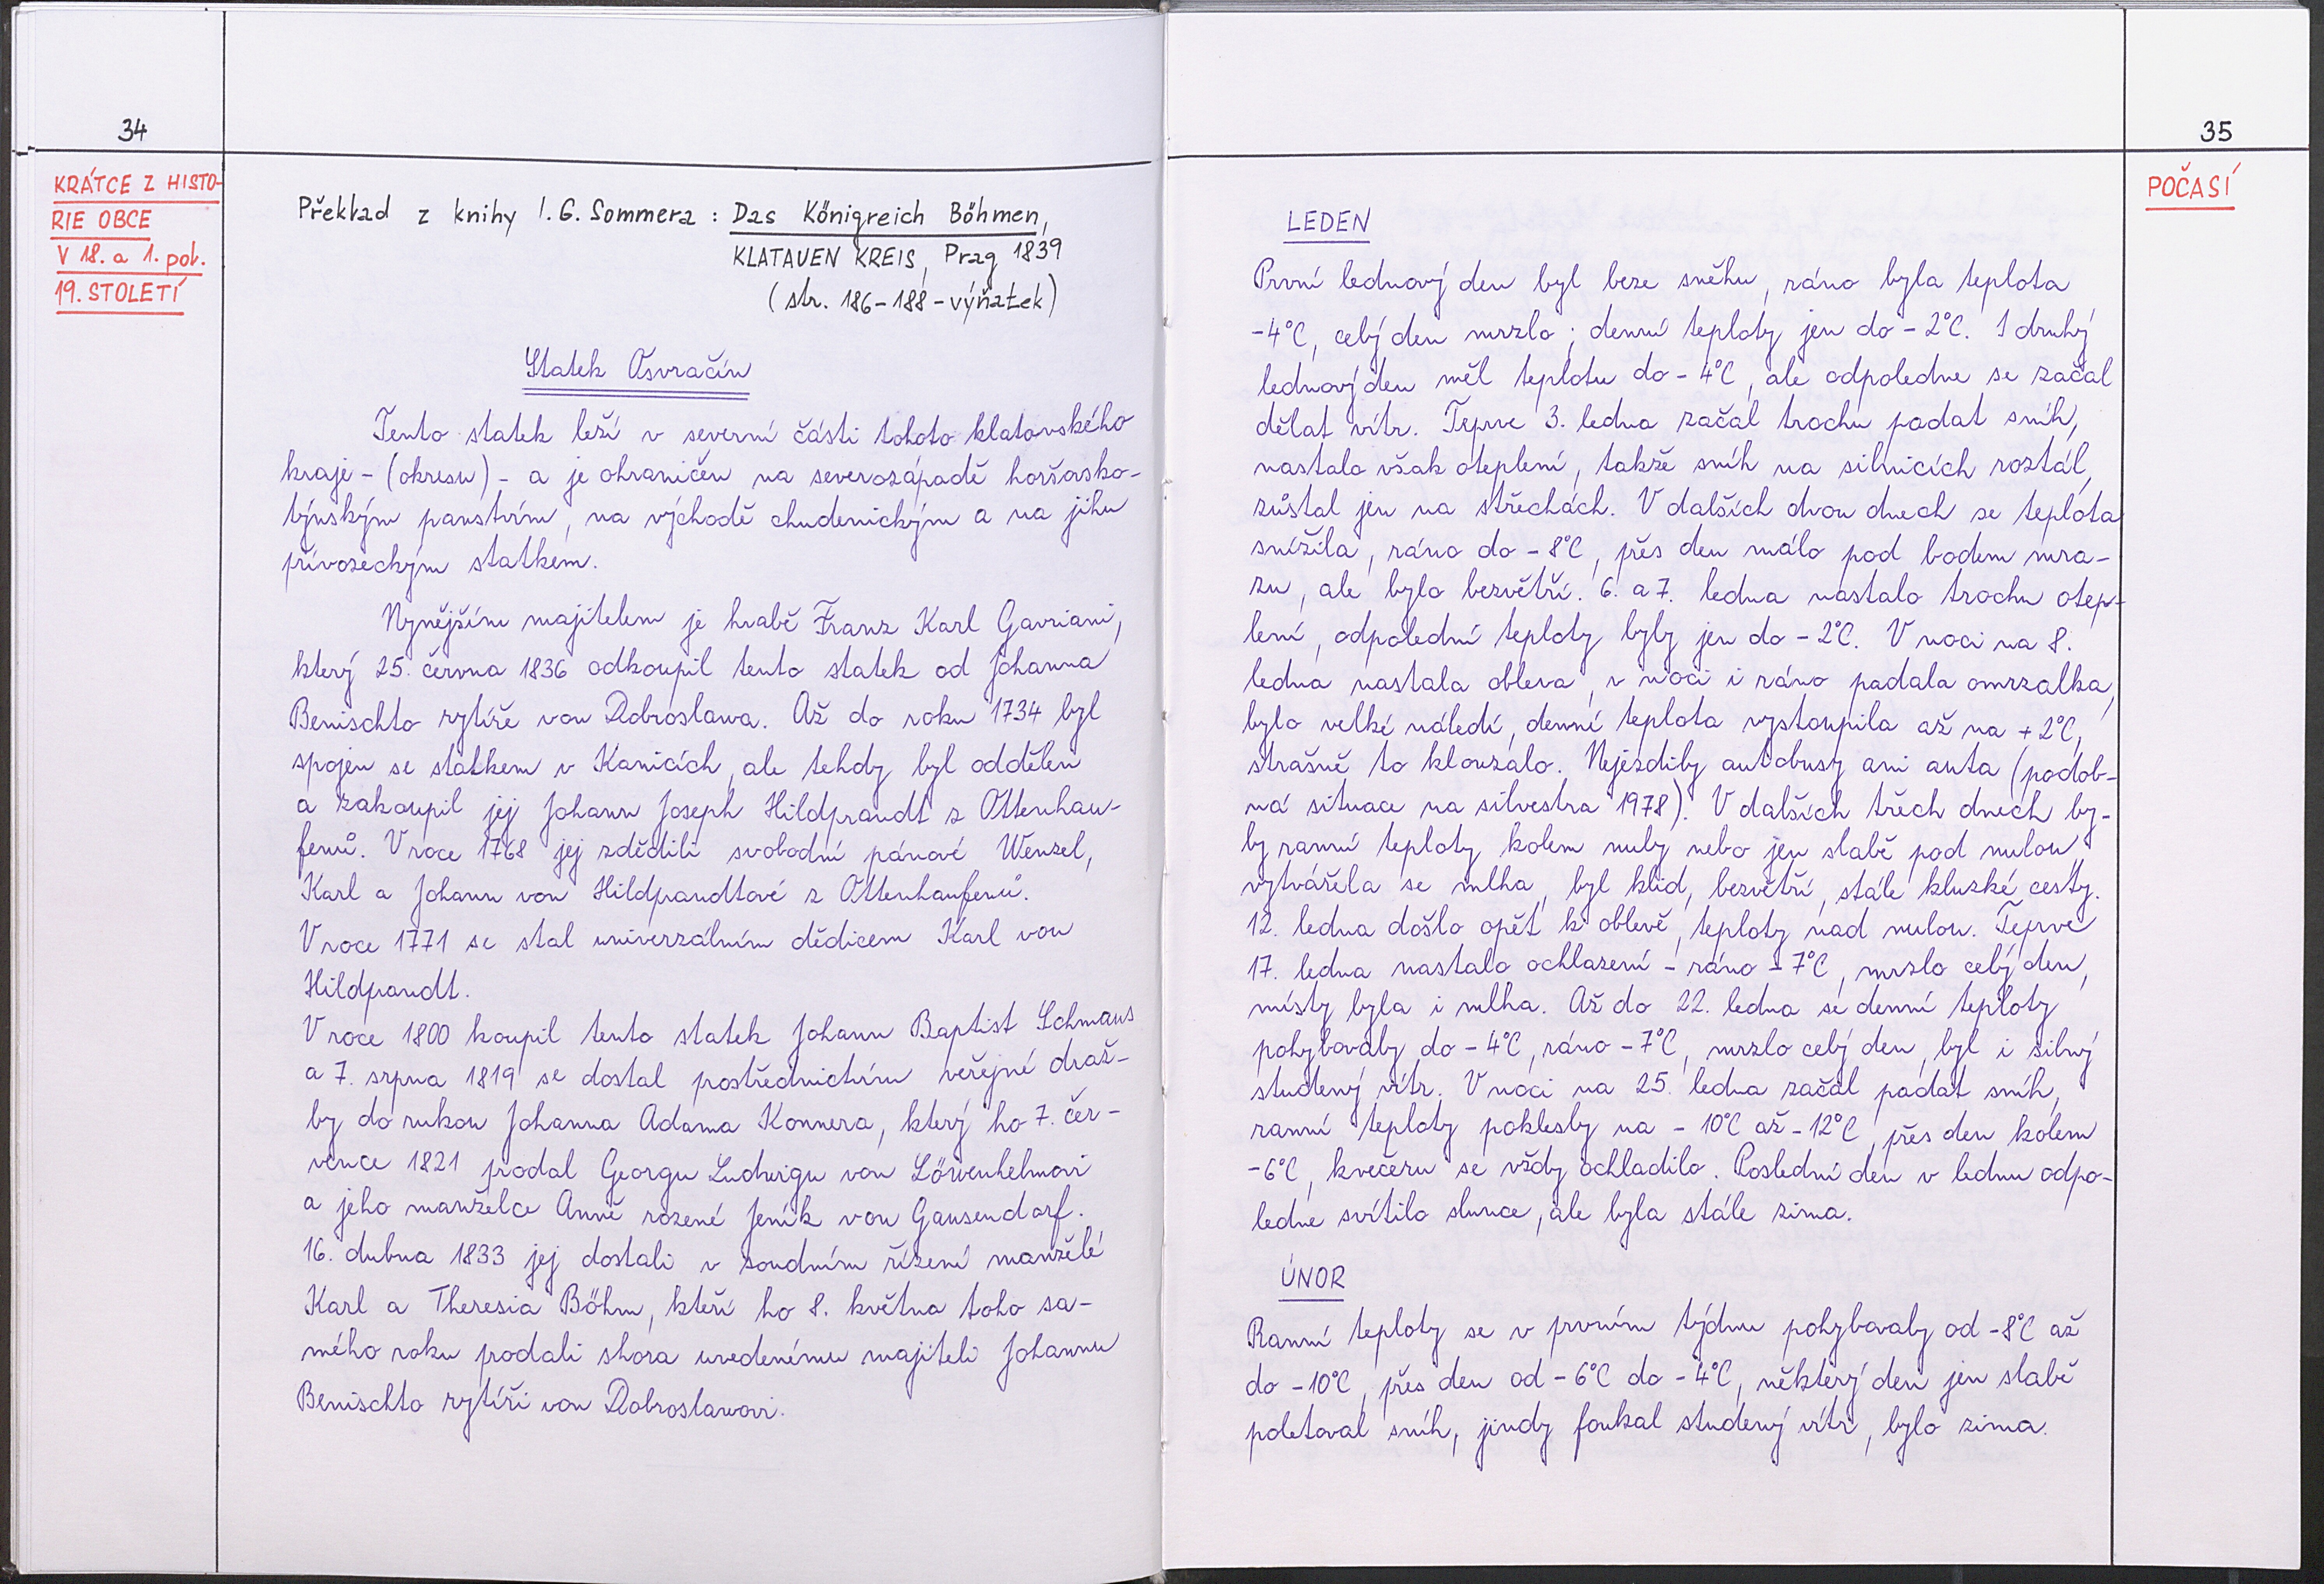 34
KRÁTCE Z HISTO-
RIE OBCE
V 18. a 1. pol.
19. STOLETÍ
Překlad z knihy I. G. Sommera : Das Königreich Böhmen,
KLATAUEN KREIS, Prag 1839
(str. 186-188 - výňatek)
Statek Osvračín
Tento statek leží v severní části tohoto klatovského
kraje - (okresu) - a je ohraničen na severozápadě horšovsko-
týnským panstvím, na východě chudenickým a na jihu
přívozeckým statkem.
Nynějším majitelem je hrabě Franz Karl Gavriani,
který 25. června 1836 odkoupil tento statek od Johanna
Benischto rytíře von Dobroslawa. Až do roku 1734 byl
spojen se statkem v Kanicích, ale tehdy byl oddělen
a zakoupil jej Johann Joseph Hildprandt z Ottenhau-
fenů. V roce 1768 jej zdědili svobodní pánové Wenzel,
Karl a Johann von Hildpandtové z Ottenhaufenů.
V roce 1771 se stal univerzálním dědicem Karl von
Hildpandt.
V roce 1800 koupil tento statek Johann Baptist Schmaus
a 7. srpna 1819 se dostal postřednictvím veřejné draž-
by do rukou Johanna Adama Konnera, který ho 7. čer-
vence 1821 prodal Georgu Ludwigu von Löwenhelmovi
a jeho manželce Anně rozené Jeník von Gausendorf.
16. dubna 1833 jej dostali v soudním řízení manželé
Karl a Theresia Böhm, kteří ho 8. května toho sa-
mého roku prodali shora uvedenému majiteli Johannu
Benischto rytíři von Dobroslawovi.
35
POČASÍ
LEDEN
První lednový den byl beze sněhu, ráno byla teplota
-4°C, celý den mrzlo; denní teploty jen do -2°C. I druhý
lednový den měl teplotu do -4°C, ale odpoledne se začal
dělat vítr. Teprve 3. ledna začal trochu padat sníh,
nastalo však oteplení, takže sníh na silnicích roztál,
zůstal jen na střechách. V dalších dvou dnech se teplota
snížila, ráno do -8°C, přes den málo pod bodem mra-
zu, ale bylo bezvětří. 6. a 7. ledna nastalo trochu otep-
lení, odpolední teploty byly jen do -2°C. V noci na 8.
ledna nastala obleva, v noci i ráno padala omrzalka,
bylo velké náledí, denní teplota vystoupila až na +2°C,
strašně to klouzalo. Nejezdily autobusy ani auta (podob-
ná situace na silvestra 1978). V dalších třech dnech by-
ly ranní teploty kolem nuly nebo jen slabě pod nulou,
vytvářela se mlha, byl klid, bezvětří, stále kluzké cesty.
12. ledna došlo opět k oblevě, teploty nad nulou. Teprve
17. ledna nastalo ochlazení - ráno -7°C, mrzlo celý den,
místy byla i mlha. Až do 22. ledna se denní teploty
pohybovaly do -4°C, ráno -7°C, mrzlo celý den, byl i silný
studený vítr. V noci na 25. ledna začal padat sníh,
ranní teploty poklesly na -10°C až -12°C, přes den kolem
-6°C, kvečeru se vždy ochladilo. Poslední den v lednu odpo-
ledne svítilo slunce, ale byla stále zima.
ÚNOR
Ranní teploty se v prvním týdnu pohybovaly od -8°C až
do -10°C, přes den od -6°C do -4°C, některý den jen slabě
poletoval sníh, jindy foukal studený vítr, bylo zima.